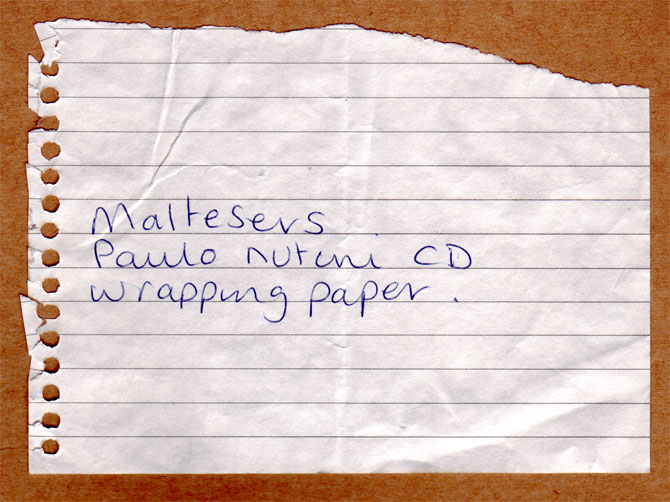 Maltesers
Paulo nutini CD
wrapping paper.